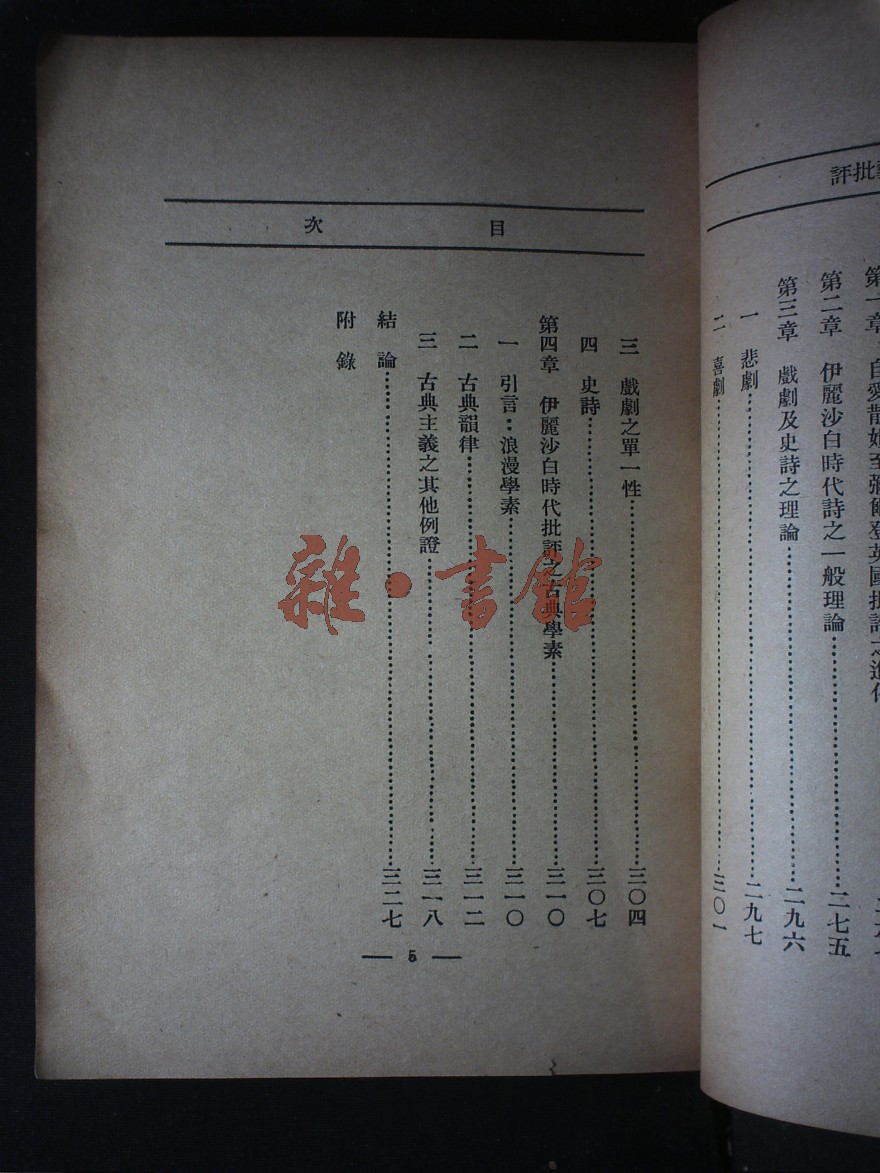 批評
第二章 伊麗沙白時代詩之一般理論……二七五
第三章 戲劇及史詩之理論……二九六
一 悲劇……二九七
二 喜劇……三〇一
目 次
三 戲劇之單一性……三〇四
四 史詩……三〇七
第四章 伊麗沙白時代批評之古典學素……三一〇
一 引言：浪漫學素……三一〇
二 古典韻律……三一二
三 古典主義之其他例證……三一八
結 論……三二七
附 錄
— 5 —
雜·書館